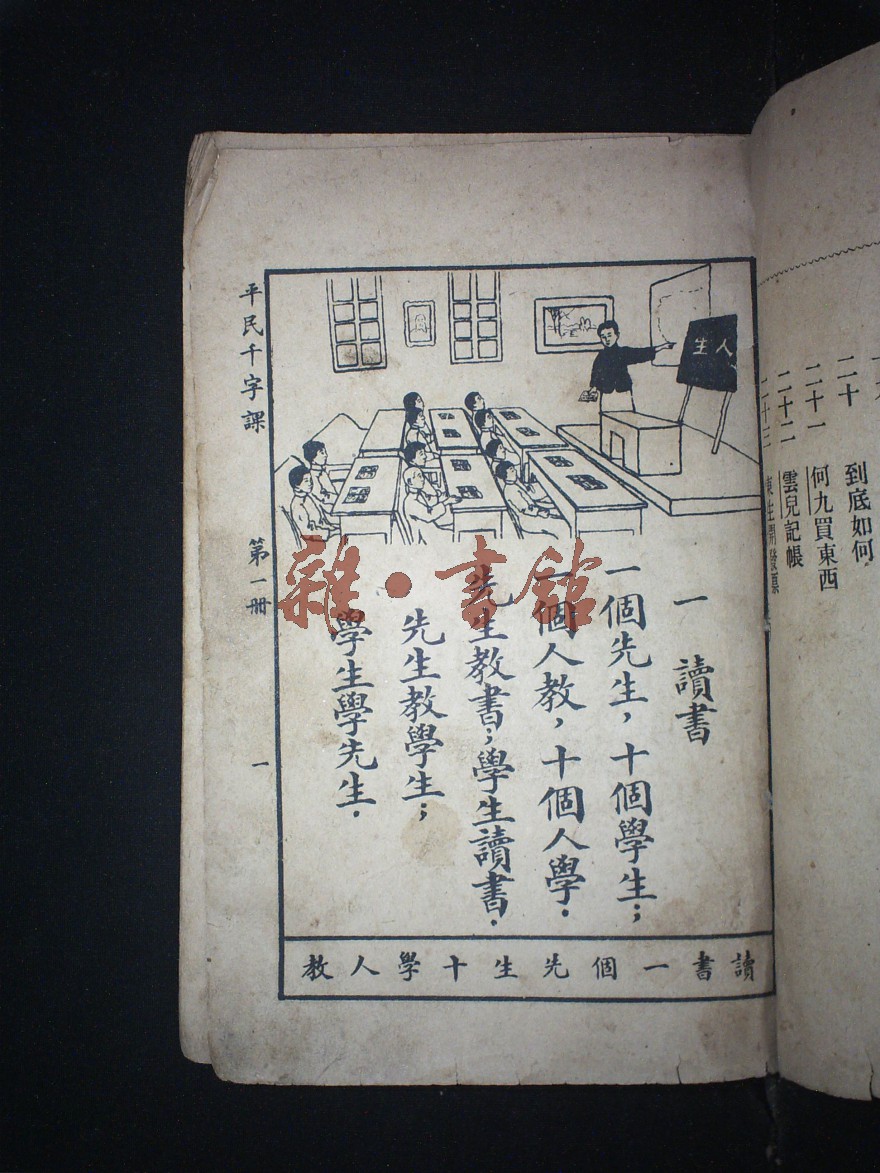 二十
到底如何
二十一
何九買東西
二十二
雲兒記帳
二十三
人生
一　讀書
一個先生，十個學生；
一個人教，十個人學．
先生教書；學生讀書．
先生教學生；
學生學先生．
讀書一個先生十學人教
平民千字課
第一冊
一
雜·書館